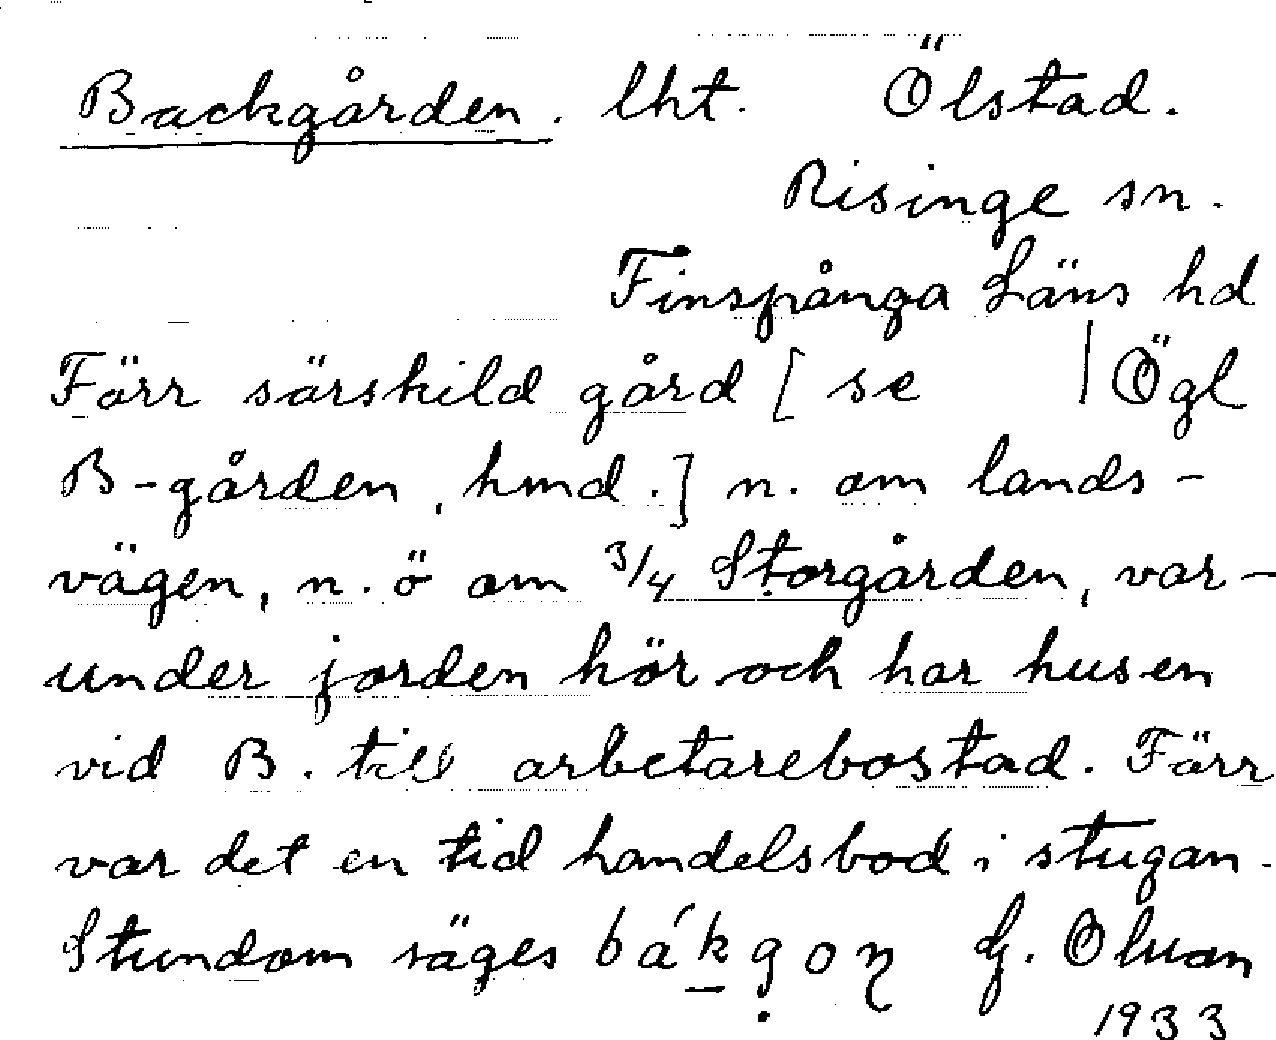 Backgården. lht. Ölstad.
Risinge sn.
Finspånga Läns hd
Förr särskild gård [ se | Ögl
B-gården, hmd.] n. om lands-
vägen, n. ö om 3/4 Storgården, var-
under jorden hör och har husen
vid B. till arbetarebostad. Förr
var det en tid handelsbod i stugan.
Stundom säges G.
1933